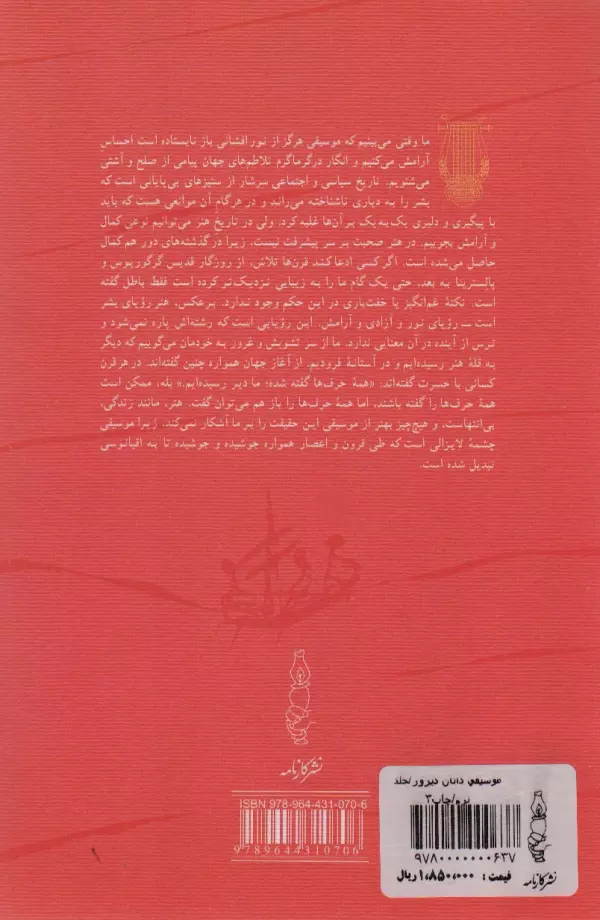 ما وقتی می‌بینیم که موسیقی هرگز از نورافشانی باز نایستاده است احساس
آرامش می‌کنیم و انگار در گرماگرم تلاطم‌های جهان پیامی از صلح و آشتی
می‌شنویم. تاریخ سیاسی و اجتماعی سرشار از ستیزهای بی‌پایانی است که
بشر را به دیاری ناشناخته می‌راند و در هر گام آن موانعی هست که باید
با پیگیری و دلیری یک به یک بر آن‌ها غلبه کرد. ولی در تاریخ هنر می‌توانیم نوعی کمال
و آرامش بجوییم. در هنر صحبت بر سر پیشرفت نیست، زیرا در گذشته‌های دور هم کمال
حاصل می‌شده است. اگر کسی ادعا کند قرن‌ها تلاش، از روزگار قدیس گرگوریوس و
پالسترینا به بعد، حتی یک گام ما را به زیبایی نزدیک‌تر کرده است فقط باطل گفته
است. نکتهٔ غم‌انگیز یا خفت‌باری در این حکم وجود ندارد. برعکس، هنر رؤیای بشر
است ــ رؤیای نور و آزادی و آرامش. این رؤیایی است که رشته‌اش پاره نمی‌شود و
ترس از آینده در آن معنایی ندارد. ما از سر تشویش و غرور به خودمان می‌گوییم که دیگر
به قلهٔ هنر رسیده‌ایم و در آستانهٔ فرودیم. از آغاز جهان همواره چنین گفته‌اند. در هر قرن
کسانی با حسرت گفته‌اند: «همهٔ حرف‌ها گفته شده؛ ما دیر رسیده‌ایم.» بله، ممکن است
همهٔ حرف‌ها را گفته باشند، اما همهٔ حرف‌ها را باز هم می‌توان گفت. هنر، مانند زندگی،
بی‌انتهاست، و هیچ‌چیز بهتر از موسیقی این حقیقت را بر ما آشکار نمی‌کند. زیرا موسیقی
چشمهٔ لایزالی است که طی قرون و اعصار همواره جوشیده و جوشیده تا به اقیانوسی
تبدیل شده است.
نشر کارنامه
ISBN 978-964-431-070-6
9789644310706
موسیقی دانان دیروز/جلد
نرم/چاپ۳
۹۷۸۰۰۰۰۰۰۰۶۳۷
قیمت: ۱,۸۵۰,۰۰۰ ریال
نشر کارنامه